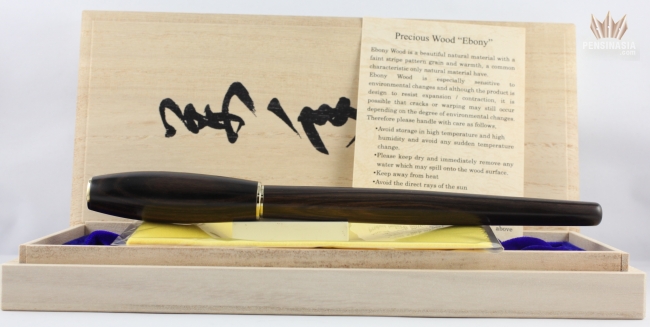 PENGINASIA
Precious Wood "Ebony"
Ebony Wood is a beautiful natural material with a
faint stripe pattern grain and warmth, a common
characteristic only natural material have.
Ebony Wood is especially sensitive to
environmental changes and although the product is
design to resist expansion / contraction, it is
possible that cracks or warping may still occur
depending on the degree of environmental changes.
Therefore please handle with care as follows.
•Avoid storage in high temperature and high
humidity and avoid any sudden temperature
change.
•Please keep dry and immediately remove any
water which may spill onto the wood surface.
•Keep away from heat
•Avoid the direct rays of the sun
above